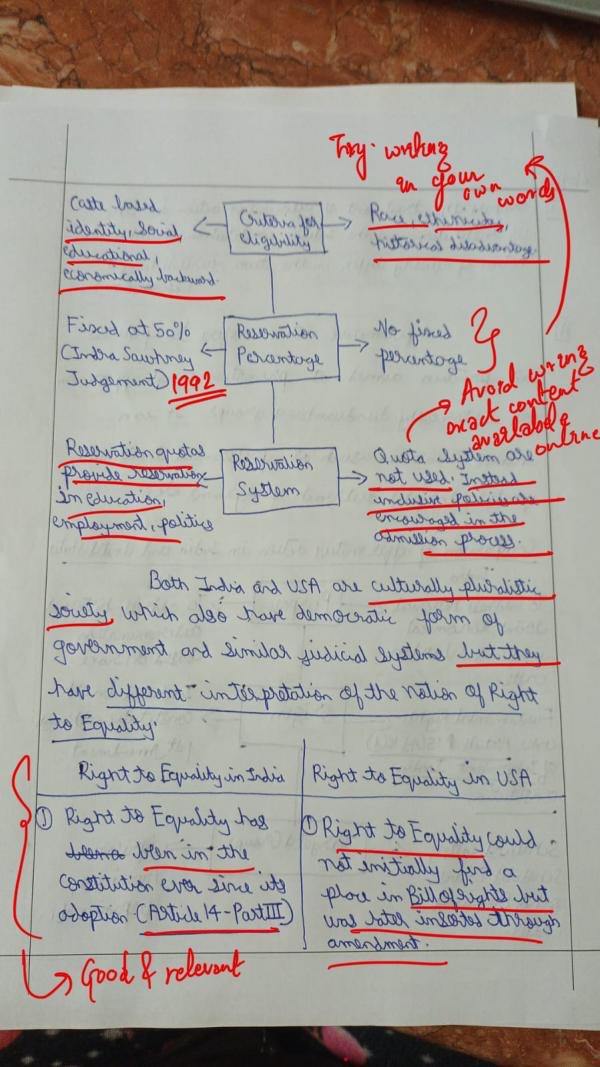 Try writing
in your
own words
Caste based
identity, social
educational,
economically backward.
Criteria for
eligibility
Race, ethinicity,
historical disadvantage
Fixed at 50%
(Indra Sawhney
Judgement) 1992
Reservation
Percentage
No fixed
percentage
Avoid writing
exact content
available
online
Reservation quotas
provide reservation
in education,
employment, politics
Reservation
System
Quota system are
not used. Instead
inclusive policies are
encouraged in the
admission process.
Both India and USA are culturally pluralistic
society which also have democratic form of
government and similar judicial systems but they
have different interpretation of the notion of Right
to Equality.
Right to Equality in India
Right to Equality in USA
① Right to Equality has
been in the
constitution ever since its
adoption (Article 14 - Part III)
① Right to Equality could
not initially find a
place in Bill of rights but
was later inserted through
amendment.
Good & relevant